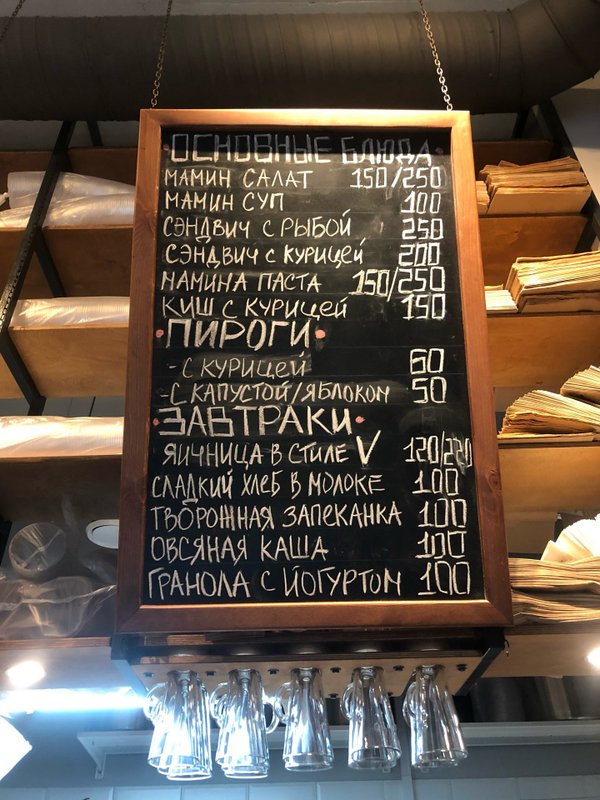 ОСНОВНЫЕ БЛЮДА
МАМИН САЛАТ 150/250
МАМИН СУП 100
СЭНДВИЧ С РЫБОЙ 250
СЭНДВИЧ С КУРИЦЕЙ 200
МАМИНА ПАСТА 150/250
КИШ С КУРИЦЕЙ 150
• ПИРОГИ •
- С КУРИЦЕЙ 60
- С КАПУСТОЙ/ЯБЛОКОМ 50
• ЗАВТРАКИ •
ЯИЧНИЦА В СТИЛЕ V 120/220
СЛАДКИЙ ХЛЕБ В МОЛОКЕ 100
ТВОРОЖНАЯ ЗАПЕКАНКА 100
ОВСЯНАЯ КАША 100
ГРАНОЛА С ЙОГУРТОМ 100